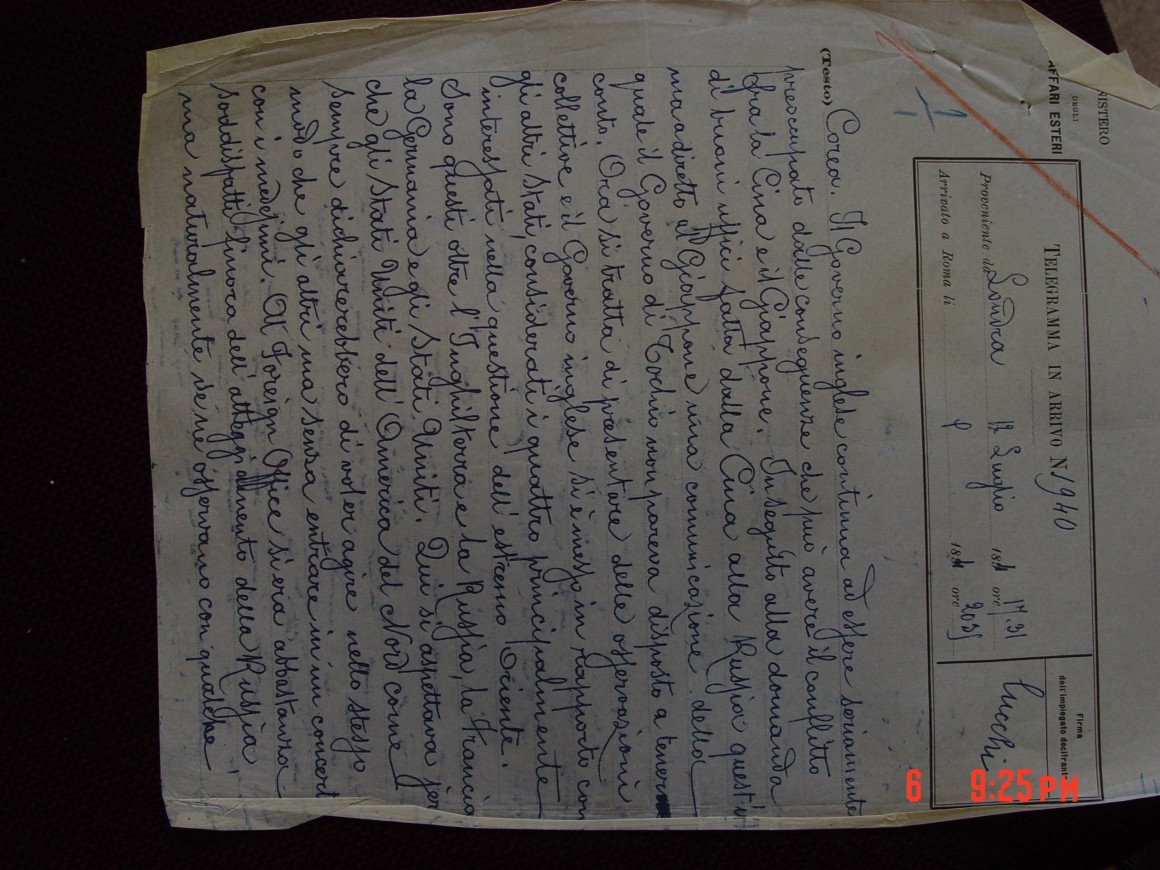 NISTERO
DEGLI
AFFARI ESTERI
TELEGRAMMA IN ARRIVO N. 1940
Proveniente da Londra 12 Luglio 189 ore 17.31
Arrivato a Roma li 189 ore 2035
Firma
dell'impiegato decifrant
Lucchi
(Testo) Corea. Il Governo inglese continua ad essere seriamente
preoccupato dalle conseguenze che può avere il conflitto
fra la Cina e il Giappone. In seguito alla domanda
di buoni uffici fatta dalla Cina alla Russia quest'ul
ma a diretto al Giappone una comunicazione della
quale il Governo di Tochio non pareva disposto a tener
conto. Ora si tratta di presentare delle osservazioni
collettive e il Governo inglese si è messo in rapporto con
gli altri Stati considerati i quattro principalmente
interessati nella questione dell'estremo Oriente.
Sono questi oltre l'Inghilterra e la Russia, la Francia
la Germania e gli Stati Uniti. Qui si aspettava per
che gli Stati Uniti dell'America del Nord come
sempre dichiarerebbero di voler agire nello stesso
modo che gli altri ma senza entrare in un concert
con i medesimi. Al Foreign Office si era abbastanza
soddisfatti finora dell'atteggiamento della Russia
ma naturalmente se ne osservano con qualche
6 9:25 PM